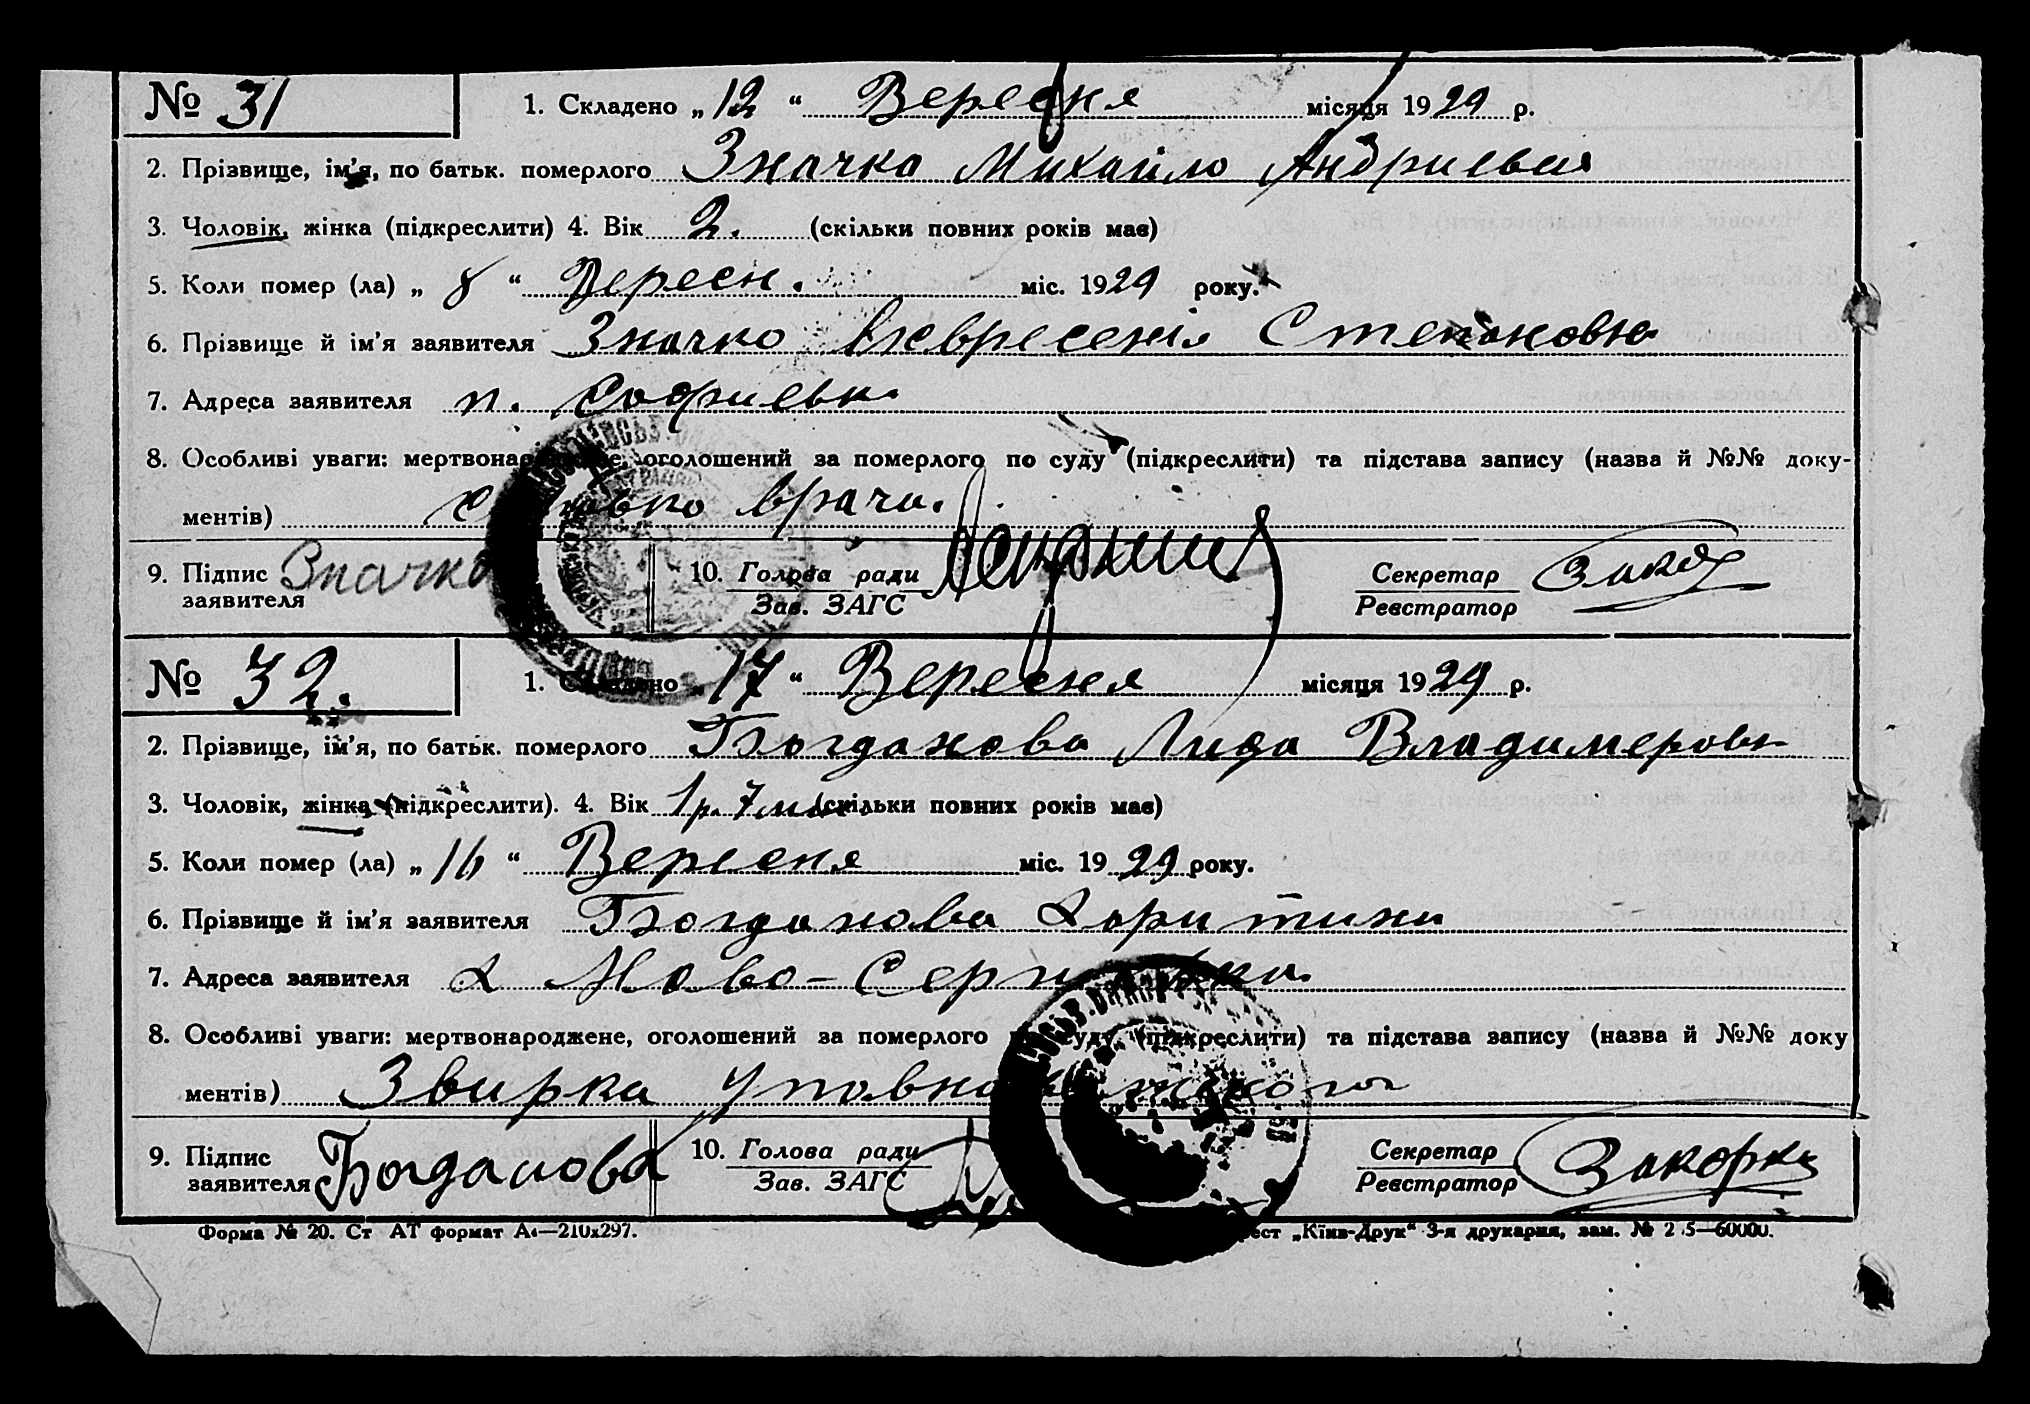 № 31 1. Складено „ 12 “ Вересня місяця 19 29 р.
2. Прізвище, ім'я, по батьк. померлого Значко Михайло Андриевич
3. Чоловік, жінка (підкреслити) 4. Вік 2. (скільки повних років має)
5. Коли помер (ла) „ 8 “ Вересн. міс. 19 29 року.
6. Прізвище й ім'я заявителя Значко Степановна
7. Адреса заявителя п. Софиевка
8. Особливі уваги: оголошений за померлого по суду (підкреслити) та підстава запису (назва й №№ доку-
ментів) врача.
9. Підпис Значко 10. Голова ради Секретар
заявителя Зав. ЗАГС Реєстратор
№ 32. 1. Складено „ 17 “ Вересня місяця 19 29 р.
2. Прізвище, ім'я, по батьк. померлого Богданова Лида Владимеровн
3. Чоловік, жінка (підкреслити). 4. Вік 1 р. 7 (скільки повних років має)
5. Коли помер (ла) „ 16 “ Вересня міс. 19 29 року.
6. Прізвище й ім'я заявителя Богданова Харитина
7. Адреса заявителя х Ново-
8. Особливі уваги: мертвонароджене, оголошений за померлого суду (підкреслити) та підстава запису (назва й №№ доку
ментів) Звирка
9. Підпис Богданова 10. Голова ради Секретар
заявителя Зав. ЗАГС Реєстратор
Форма № 20. Ст АТ формат А4—210x297. „Київ-Друк“ 3-я друкарня, зам. № 2 5—60000.